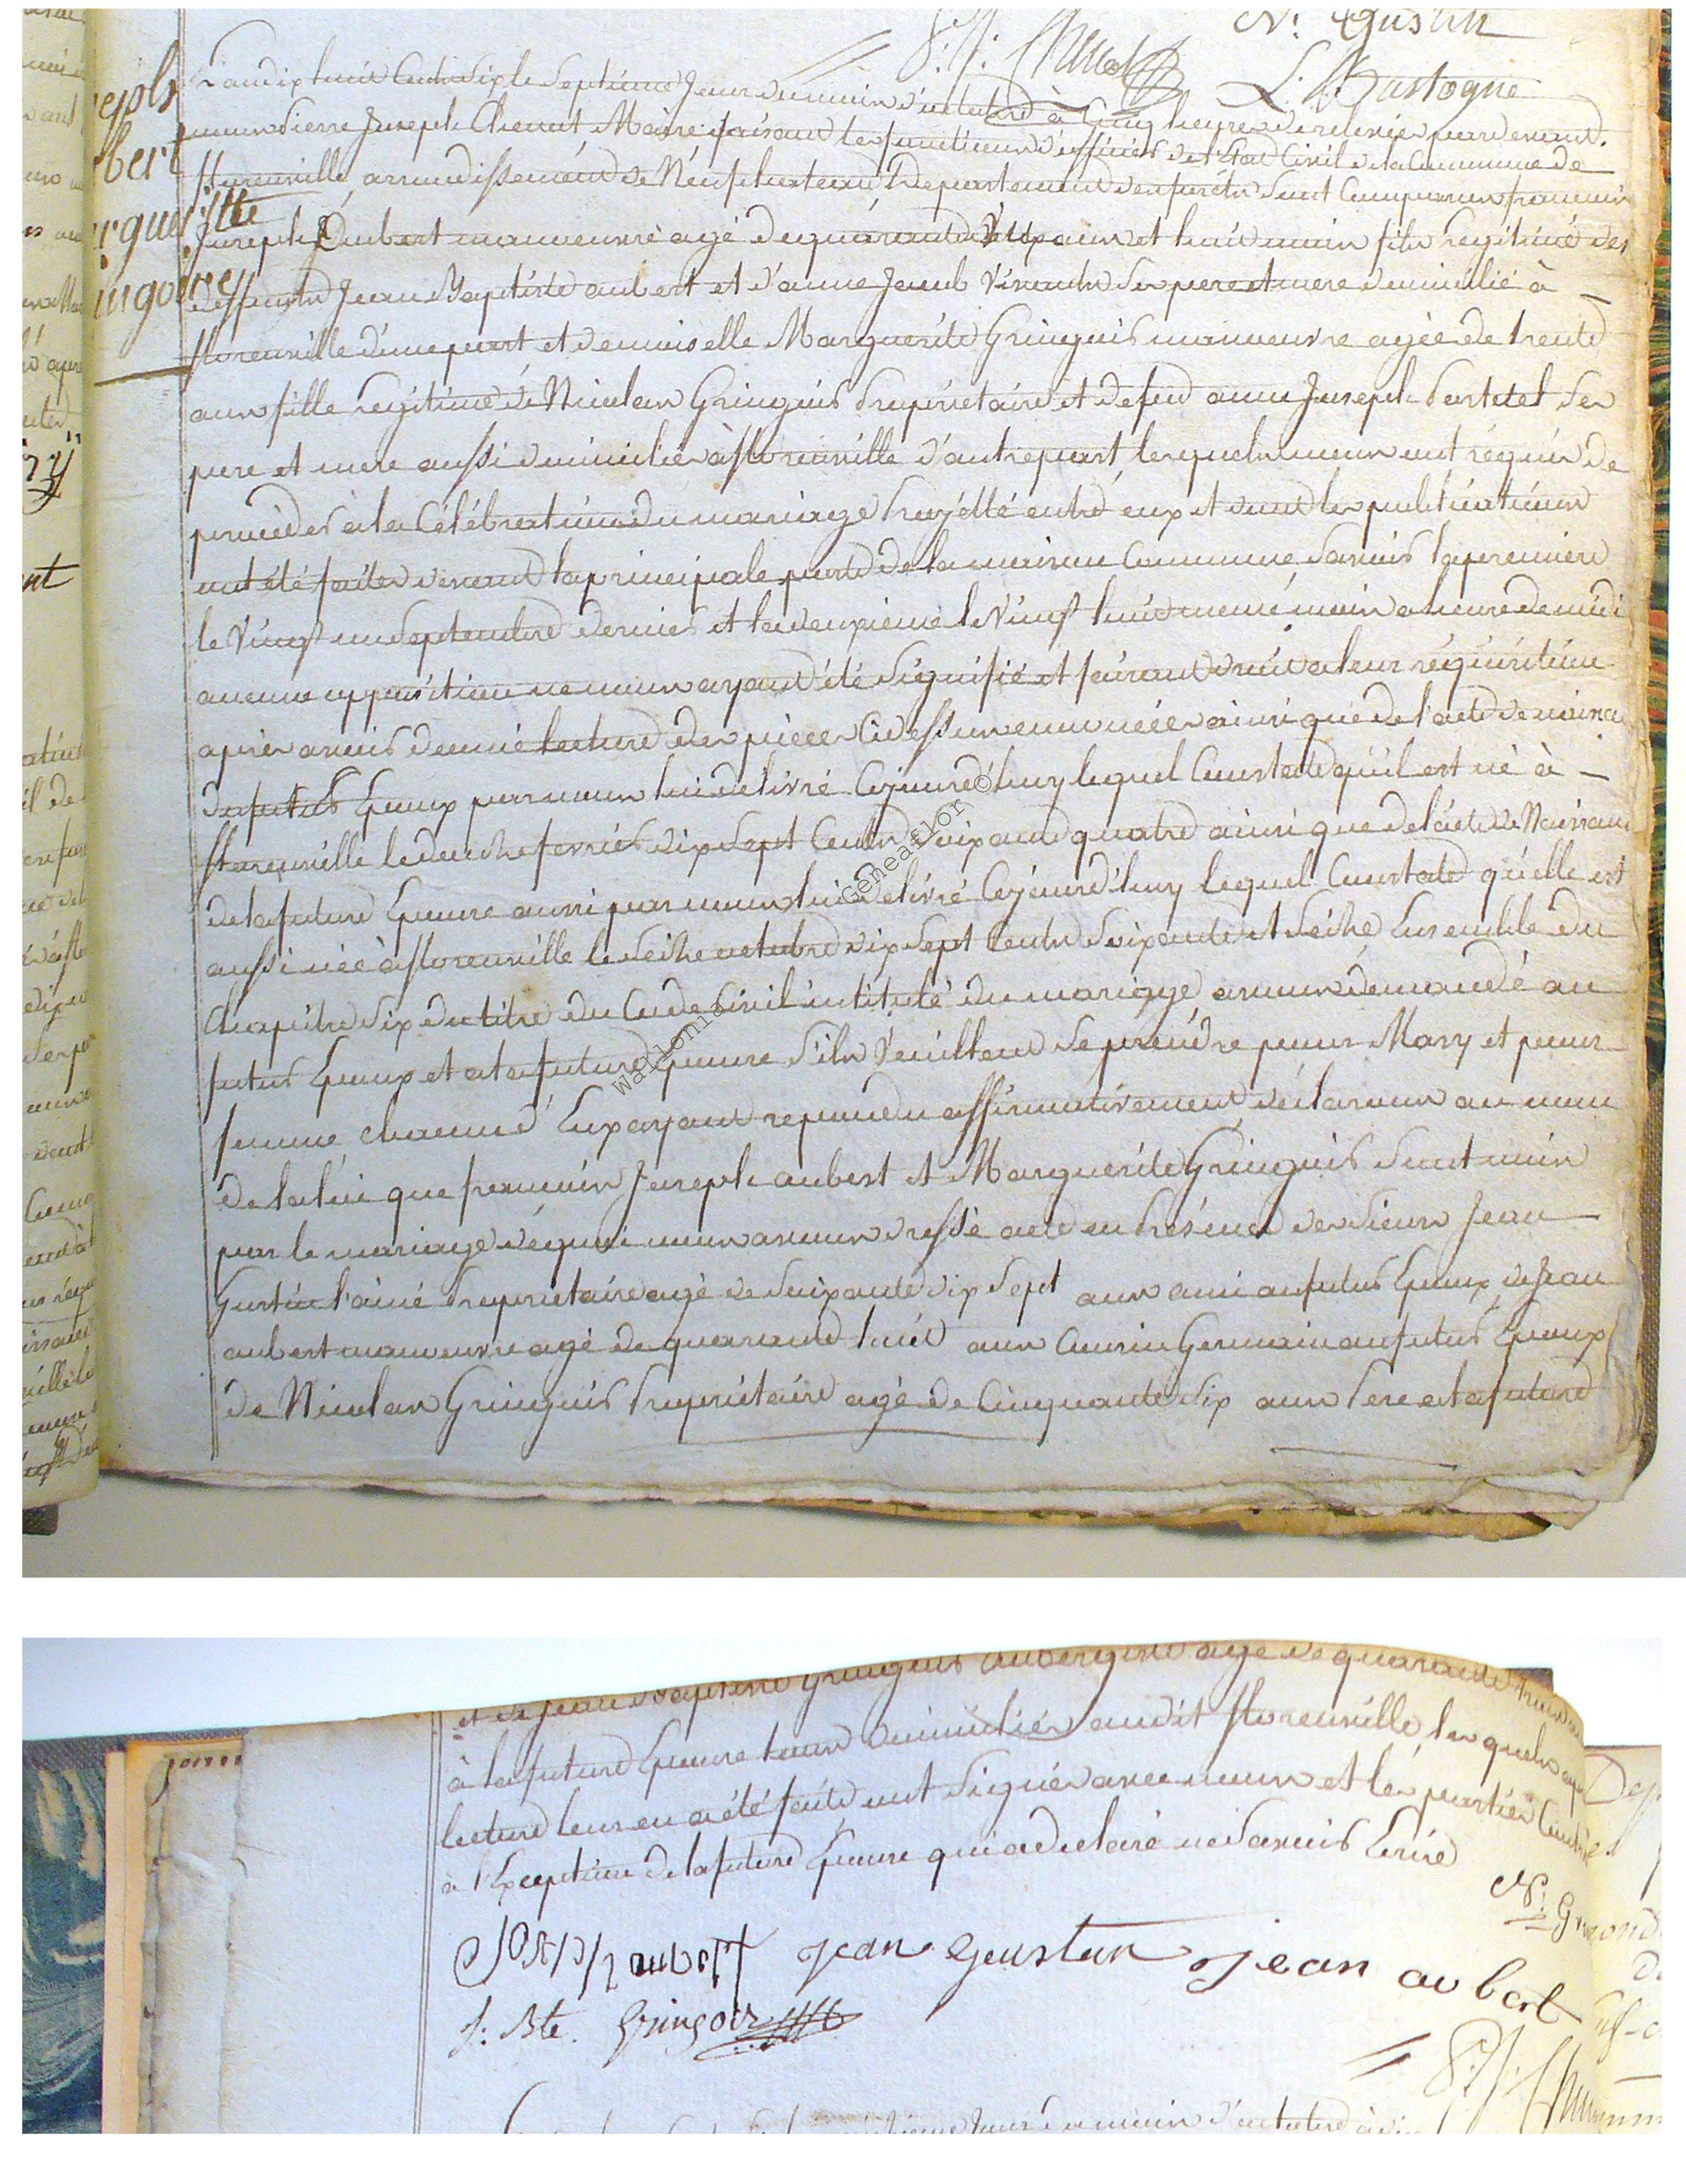 N: Gustin
P: J: Chenot
L: J: Bastogne
Joseph
aubert
Margueritte
Gringoire
L'an dix huit Cents Six le Septieme Jour du mois d'octobre à Cinq heures de relevée pardevant
nous Pierre Joseph Chenot Maire faisant les fonctions d'officier de l'Etat Civil de la Commune de
florenville, arrondissement de Néufchateau Departement des forêts Sont Comparus francois
Joseph aubert manoeuvre agé de quarante deux ans et huit mois fils legitime des
deffunts Jean Baptiste aubert et d'anne Jacob Vivants Ses pere et mere domicilié à
florenville d'une part et demoiselle Marguerite Gringoir manoeuvre agée de trente
ans fille legitime de Nicolas Gringoir Proprietaire et de feu anne Joseph Ses
pere et mere aussi domiciliés à florenville d'autre part, lesquels nous ont réquis de
proceder à la Célébration du mariage Projetté entre eux et dont les publications
ont été faites devant la principale porte de la maison Commune, Savoir la premiere
le Vingt un Septembre dernier et la deuxieme le Vingt huit meme mois a heure de midi
aucune opposition ne nous ayant été Signifié et faisant droit a leur réquisition
après avoir donné lecture des pièces Ci dessus énoncées ainsi que de l'acte de naissance
du futur Epoux par nous lui delivré Cejourd'huy lequel Constate qu'il est né à
florenville le douze fevrier dix Sept Cents Soixante quatre ainsi que de l'acte de Naissance
de la future Epouse aussi par nous lui delivré Cejourd'huy lequel Constate qu'elle est
aussi née à florenville le Seize octobre dix Sept Cents Soixante et Seize Ensemble du
Chapitre Six du titre du Code Civil intitulé du mariage avons demandé au
futur Epoux et a la future Epouse S'ils Veuillent Se prendre pour Mary et pour
femme, chacune d'Eux ayant repondu affirmativement déclarons au nom
de la loi que francois Joseph aubert et Marguerite Gringoir Sont unis
par le mariage de quoi nous avons dressé acte en Présence des Sieurs Jean
Gustin l'ainé Proprietaire agé de Soixante dix Sept ans ami au futur Epoux, de Jean
aubert manoeuvre agé de quarante huit ans Cousin Germain au futur Epoux
de Nicolas Gringoir Proprietaire agé de Cinquante Six ans Pere a la future
et de Jean Baptiste Gringoir aubergiste agé de quarante
à la future Epouse tous domiciliés audit florenville, lesquels après
lecture leur en a été faite ont Signés avec nous et les parties
à l'Exception de la future Epouse qui a declaré ne Savoir Ecrire
N:
Joseph aubert Jean Gustin Jean aubert
J: Bte. Gringoir
P: J: Chenot
Jour du mois d'octobre à
Wallonia Geneaflor ©